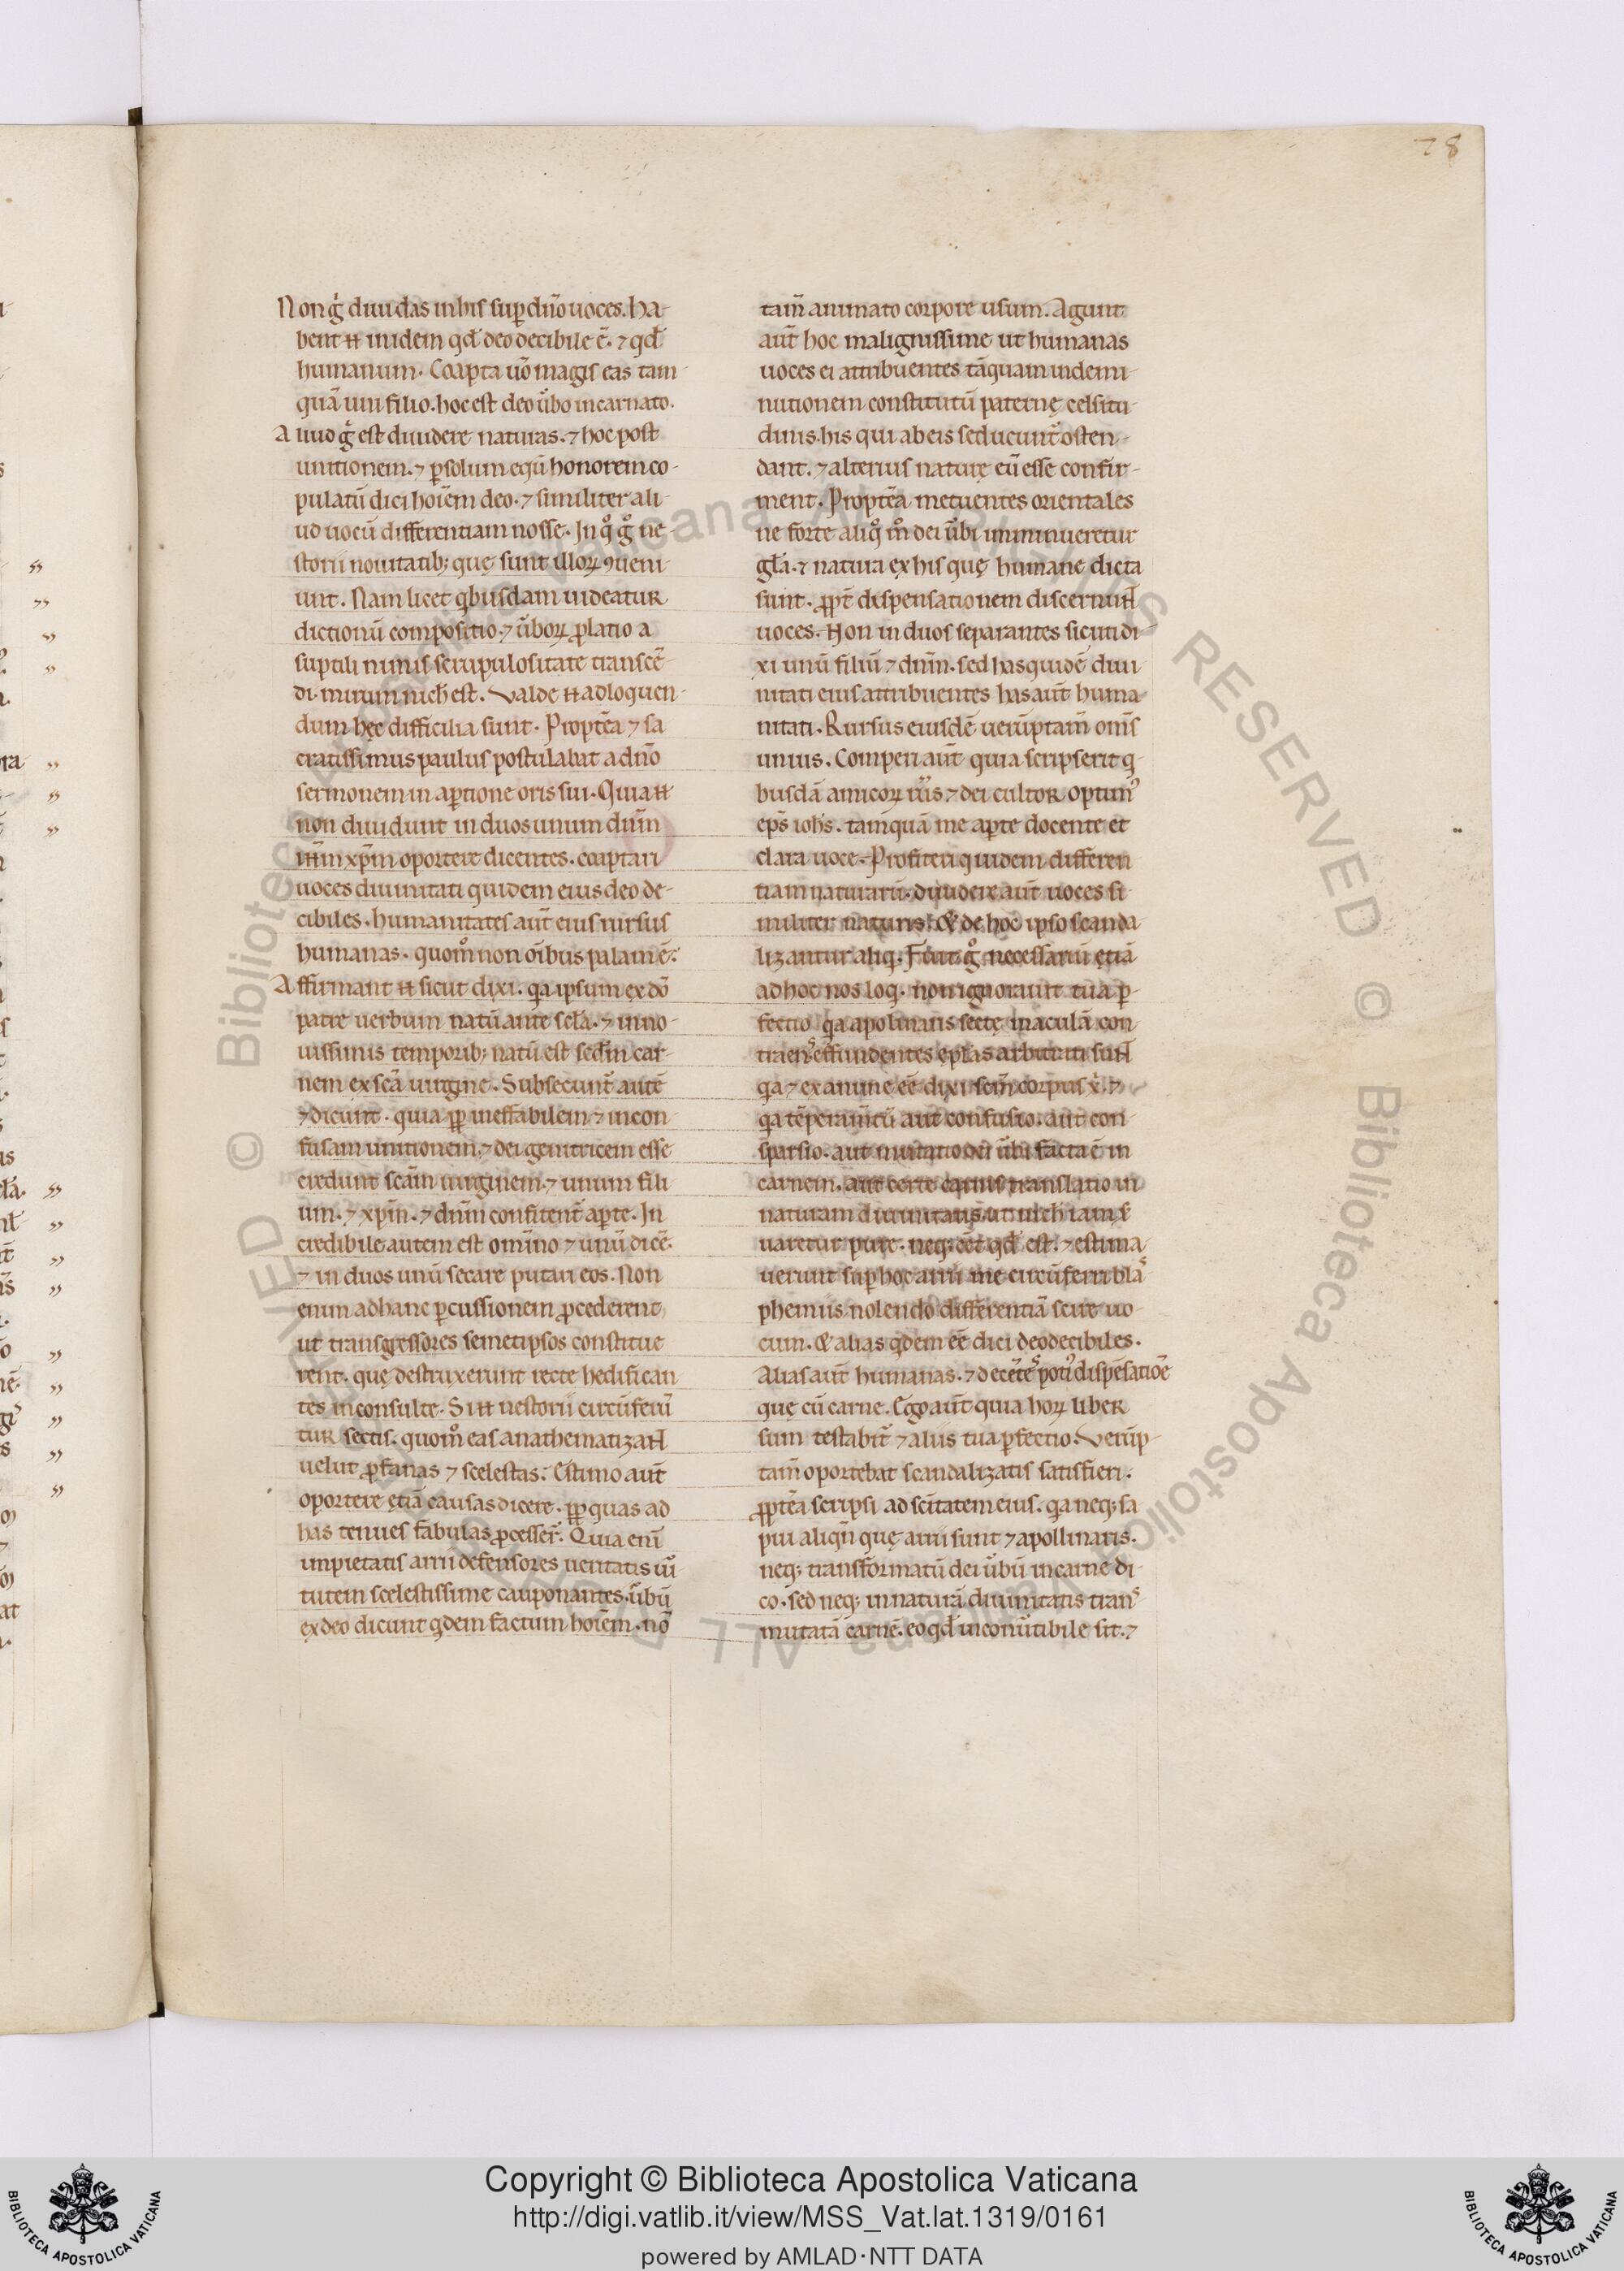 78
Non g̊ diuidas in his sup dn̄o uoces. ha-
bent n̄ indem qd̄ deo decibile ē. ⁊ qd̄
humanum. Coapta uō magis eas tam-
quā uni filio. hoc est deo ūbo incarnato.
Aliud g̊ est diuidere naturas. ⁊ hoc post
unitionem. ⁊ p solum equū honorem co-
pulatū dici hoīem deo. ⁊ similiter ali-
ud uocū differentiam nosse. In q̊ g̊ ne-
storii nouitatib; quę sunt illoꝝ ꝯueni-
unt. Nam licet qbusdam uideatur
dictionū compositio. ⁊ ūboꝝ ꝓlatio a
suptili nimis scrupulositate transcē-
di. mirum nich̄ est. Valde n̄ ad loquen-
dum hęc difficilia sunt. Proptēa ⁊ sa
cratissimus paulus postulabat a dn̄o
sermonem in aptione oris sui. Quia n̄
non diuidunt in duos unum dn̄m
nr̄m xp̄m oportere dicentes. coaptari
uoces diuinitati quidem eius deo de-
cibiles. humanitates aūt eius rursus
humanas. quom̊ non oībus palam ē.
Affirmant n̄ sicut dixi. qa ipsum ex dō
patre uerbum natū ante scl̄a. ⁊ in no-
uissimis temporib; natū est scd̄m car-
nem ex scā uirgine. Subsecunt̄ autē
⁊ dicunt. quia ꝓp ineffabilem ⁊ incon-
fusam unitionem. ⁊ dei genitricem esse
credunt scām uirginem. ⁊ unum fili
um. ⁊ xp̄m. ⁊ dn̄m confitent̄ apte. In
credibile autem est om̄ino ⁊ unū dicē.
⁊ in duos unū secare putari eos. Non
enim ad hanc pcussionem ꝓcederent
ut transgressores semetipsos constitue
rent. quę destruxerunt recte hedifican
tes inconsulte. Si n̄ nestorii circūferū
tur sectis. quom̊ eas anathematizant
uelut ꝓfanas ⁊ scelestas. Estimo aūt
oportere ętiā causas dicere. ꝓp quas ad
has tenues fabulas ꝓcesser̄. Quia enī
impietatis arrii defensores ueritatis uī
tutem scelestissime cauponantes. ūbū
ex deo dicunt qdem factum hoīem. nō
tam̄ animato corpore usum. Agunt
aūt hoc malignissime ut humanas
uoces ei attribuentes tāquam in demi-
nutionem constitutū paternę celsitu-
dinis. his qui ab eis seducunt̄ osten-
dant. ⁊ alterius naturę eū esse confir-
ment. Proptēa metuentes orientales
ne forte aliq̊ m̊ dei ūbi imminueretur
gl̄a. ⁊ natura ex his quę humane dicta
sunt. ꝓpt̄ dispensationem discernunt
uoces. Non in duos separantes sicuti di-
xi unū filiū ⁊ dn̄m. sed has quidē diui
nitati eius attribuentes has aūt huma-
nitati. Rursus eiusdē uerūptam̄ om̄s
unius. Comperi aūt quia scripserit q-
busdā amicoꝝ ur̄is ⁊ dei cultor optim'
ep̄s ioh̄s. tamquā me apte docente et
clara uoce. Profiteri quidem differen
tiam naturarū. diuidere aūt uoces si
militer naturis. & de hoc ipso scanda
lizantur aliq. Fuit g̊ necessariū ętiā
ad hoc nos loq. non ignorauit tua p-
fectio qa apolinaris sectę maculā con
traent' effundentes ep̄las arbitrati sunt
qa ⁊ exanime eē dixi scm̄ corpus x̄. ⁊
qa tēperam̄tū aut confusio. aut con-
sparsio. aut mutatio dei ūbi facta ē in
carnem. aut certe carnis translatio in
naturam diuinitatis. ut nich̄ iam s̄
uaretur pure. neq; eēt qd̄ est. ⁊ estima-
uerunt sup hoc arrii me circūferri blas
phemiis nolendo differentiā scire uo
cum. & alias qdem eē dici deodecibiles.
Alias aūt humanas. ⁊ decētes poti' dispēsatiōe
quę cū carne. Ego aūt quia hoꝝ liber
sum testabit̄ ⁊ aliis tua pfectio. Verūp-
tam̄ oportebat scandalizatis satisfieri.
ꝓptēa scripsi ad scītatem eius. qa neq; sa
pui aliqn̄ quę arrii sunt ⁊ apollinaris.
neq; transformatū dei ūbū in carne di-
co. sed neq; in naturā diuinitatis trans
mutatā carnē. eo qd̄ inconūtibile sit. ⁊
Copyright © Biblioteca Apostolica Vaticana
http://digi.vatlib.it/view/MSS_Vat.lat.1319/0161
powered by AMLAD·NTT DATA